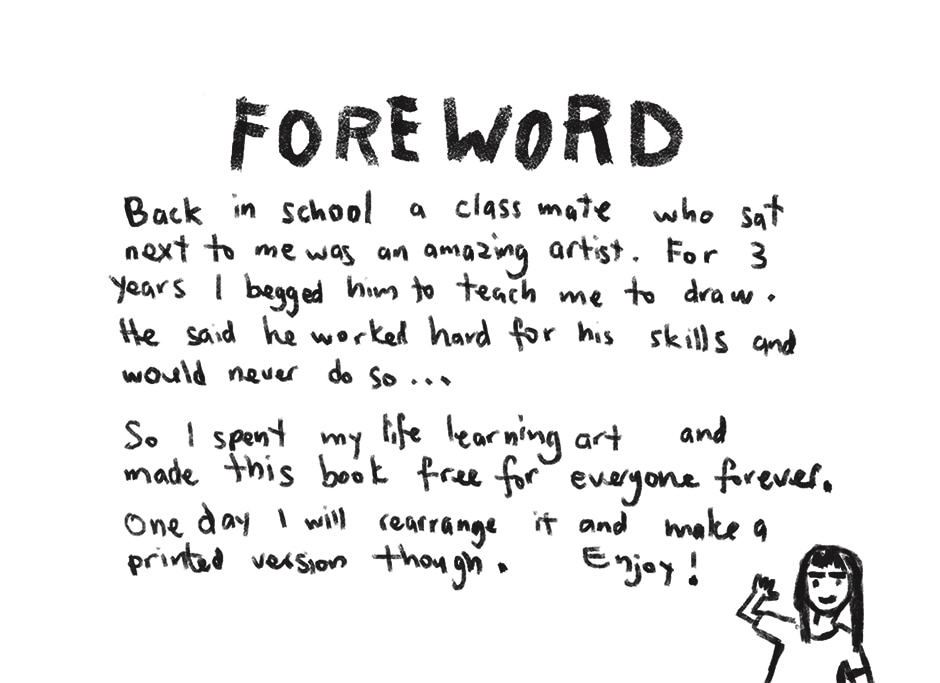 FOREWORD
Back in school a class mate who sat
next to me was an amazing artist. For 3
years I begged him to teach me to draw.
He said he worked hard for his skills and
would never do so...
So I spent my life learning art and
made this book free for everyone forever.
One day I will rearrange it and make a
printed version though. Enjoy!